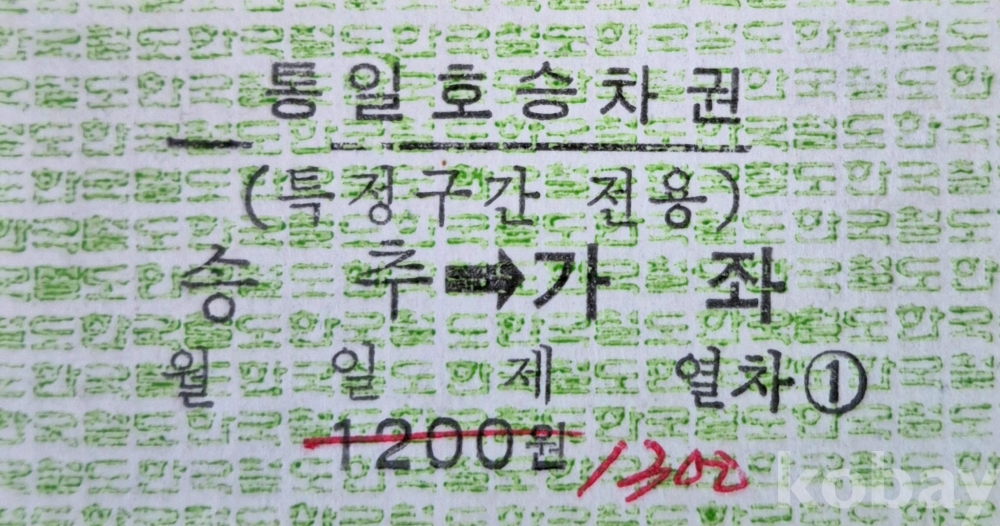 통일호승차권
(특정구간 전용)
송 추➡가 좌
월 일 제 열차①
1200원 1300
kobay